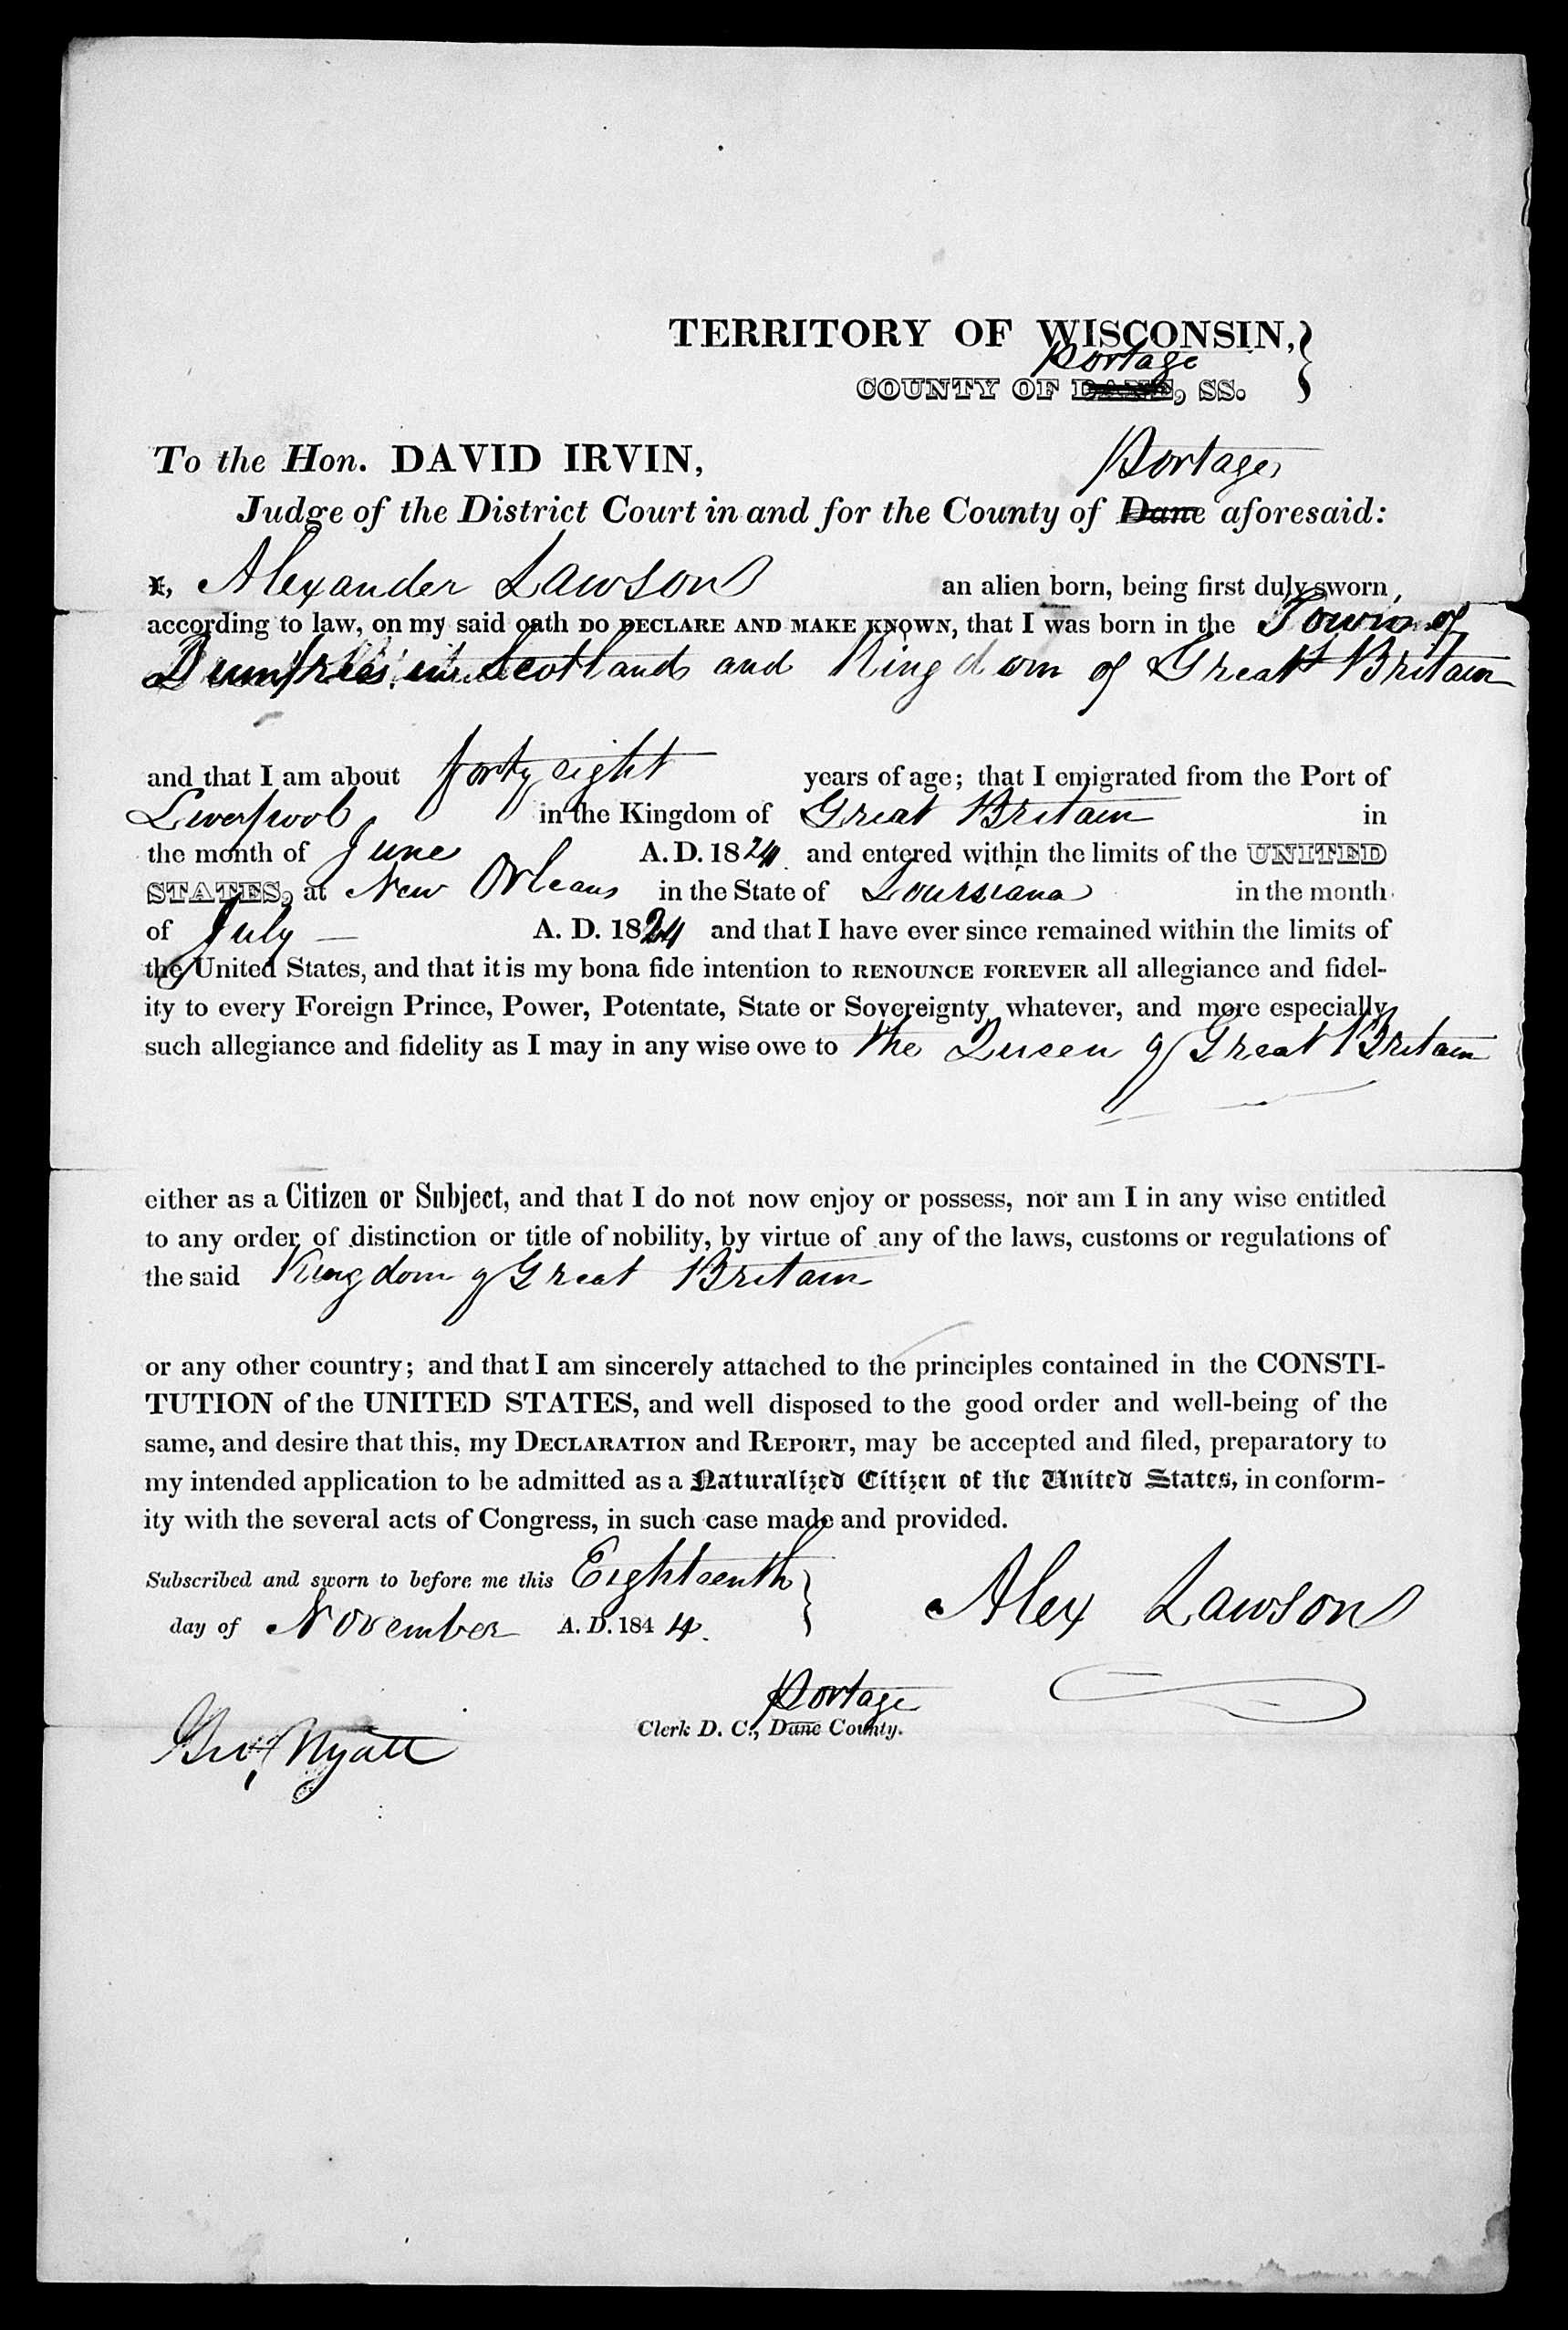 TERRITORY OF WISCONSIN,
Portage
COUNTY OF DANE, SS.
To the Hon. DAVID IRVIN,
Portage,
Judge of the District Court in and for the County of Dane aforesaid:
I, Alexander Lawson an alien born, being first duly sworn,
according to law, on my said oath DO DECLARE AND MAKE KNOWN, that I was born in the Town of
Dumfries in Scotland and Kingdom of Great Britain
and that I am about forty eight years of age; that I emigrated from the Port of
Liverpool in the Kingdom of Great Britain in
the month of June A. D. 1824 and entered within the limits of the UNITED
STATES, at New Orleans in the State of Louisiana in the month
of July — A. D. 1824 and that I have ever since remained within the limits of
the United States, and that it is my bona fide intention to RENOUNCE FOREVER all allegiance and fidel-
ity to every Foreign Prince, Power, Potentate, State or Sovereignty whatever, and more especially
such allegiance and fidelity as I may in any wise owe to the Queen of Great Britain
either as a Citizen or Subject, and that I do not now enjoy or possess, nor am I in any wise entitled
to any order of distinction or title of nobility, by virtue of any of the laws, customs or regulations of
the said Kingdom of Great Britain
or any other country; and that I am sincerely attached to the principles contained in the CONSTI-
TUTION of the UNITED STATES, and well disposed to the good order and well-being of the
same, and desire that this, my DECLARATION and REPORT, may be accepted and filed, preparatory to
my intended application to be admitted as a Naturalized Citizen of the United States, in conform-
ity with the several acts of Congress, in such case made and provided.
Subscribed and sworn to before me this Eighteenth
day of November A. D. 184 4. Alex Lawson
Portage
Clerk D. C., Dane County.
Geo, Wyatt